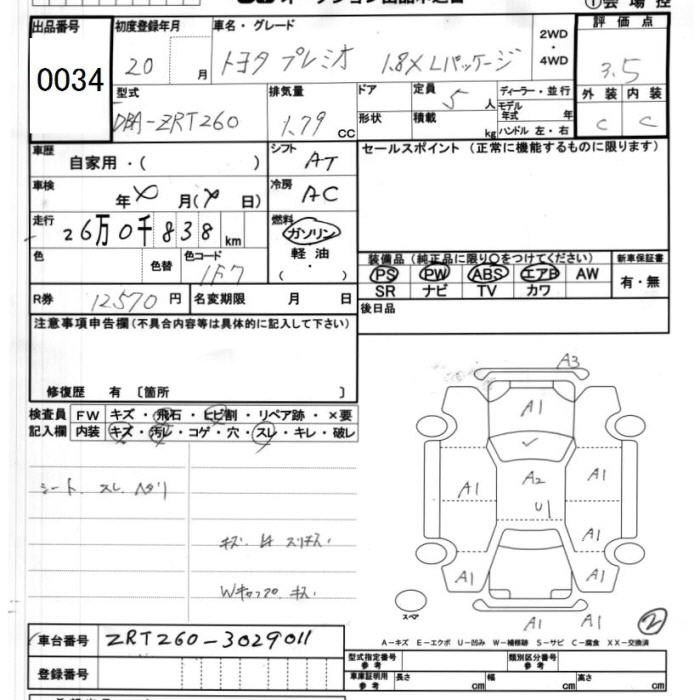 オークション出品申込書
①会場控
出品番号
0034
初度登録年月
20 月
車名・グレード
トヨタ プレミオ 1.8X Lパッケージ
2WD
・
4WD
評価点
3.5
外装 内装
C C
型式
DBA-ZRT260
排気量
1.79 CC
ドア
定員 5 人
形状
積載 kg
ディーラー・並行
モデル年式 年
ハンドル 左・右
車歴
自家用・( )
シフト AT
車検
年 月( 日)
冷房 AC
走行
26万0千838 km
燃料
ガソリン
軽油
・
( )
色
色替
色コード
1F7
R券 12570 円
名変期限 月 日
セールスポイント (正常に機能するものに限ります)
装備品 (純正品に限り○をつけてください)
PS PW ABS エアB AW
SR ナビ TV カワ
新車保証書
有・無
後日品
注意事項申告欄 (不具合内容等は具体的に記入して下さい)
修復歴 有 〔箇所 〕
検査員記入欄
FW キズ・飛石・ヒビ割・リペア跡・×要
内装 キズ・汚レ・コゲ・穴・スレ・キレ・破レ
シート スレ ヘタリ
キズ
Wキャップ キズ
A3
A1
A2
U1
A1
A1
A1
A1
A1
A1 A1
スペア
2
A-キズ E-エクボ U-凹み W-補修跡 S-サビ C-腐食 XX-交換済
車台番号 ZRT260-3029011
登録番号
型式指定番号
参考
類別区分番号
参考
車庫証明用
参考
長さ cm 幅 cm 高さ cm